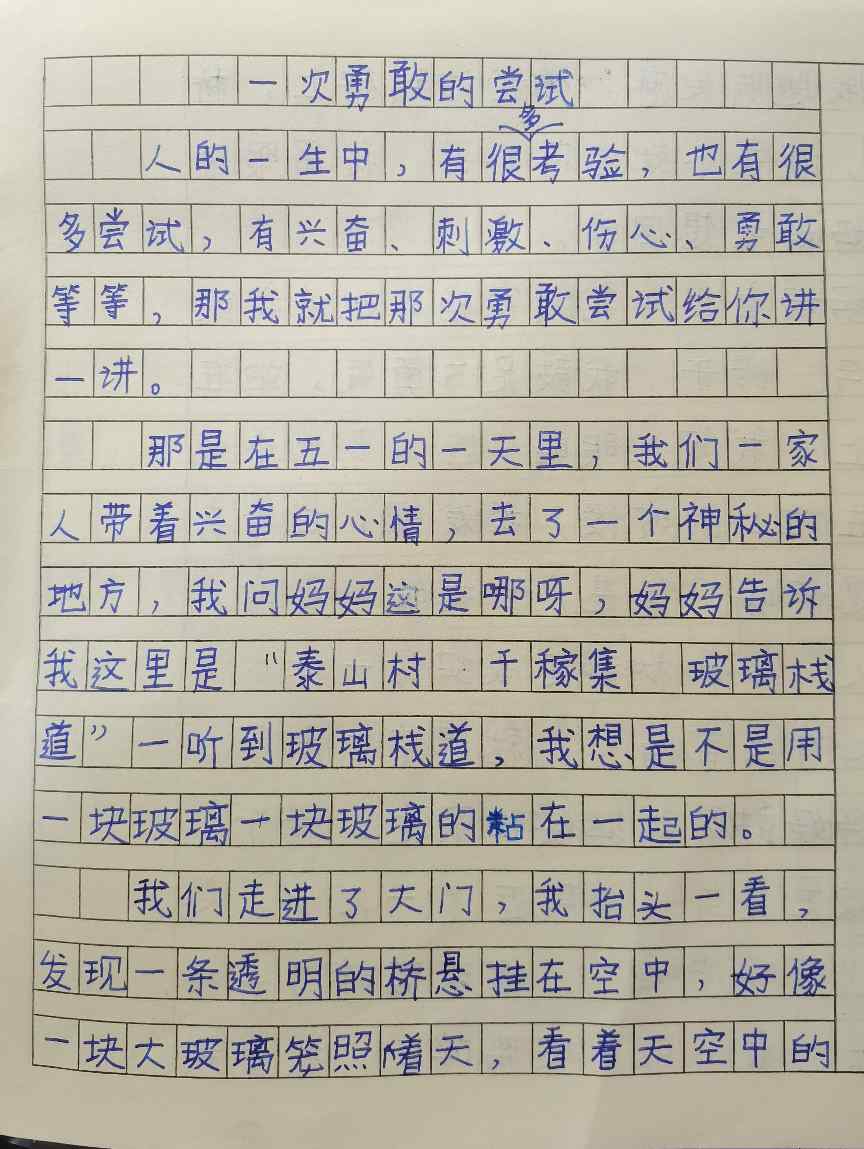 一次勇敢的尝试
人的一生中，有很多考验，也有很
多尝试，有兴奋、刺激、伤心、勇敢
等等，那我就把那次勇敢尝试给你讲
一讲。
那是在五一的一天里，我们一家
人带着兴奋的心情，去了一个神秘的
地方，我问妈妈这是哪呀，妈妈告诉
我这里是“泰山村 千稼集 玻璃栈
道”一听到玻璃栈道，我想是不是用
一块玻璃一块玻璃的粘在一起的。
我们走进了大门，我抬头一看，
发现一条透明的桥悬挂在空中，好像
一块大玻璃笼照着天，看着天空中的